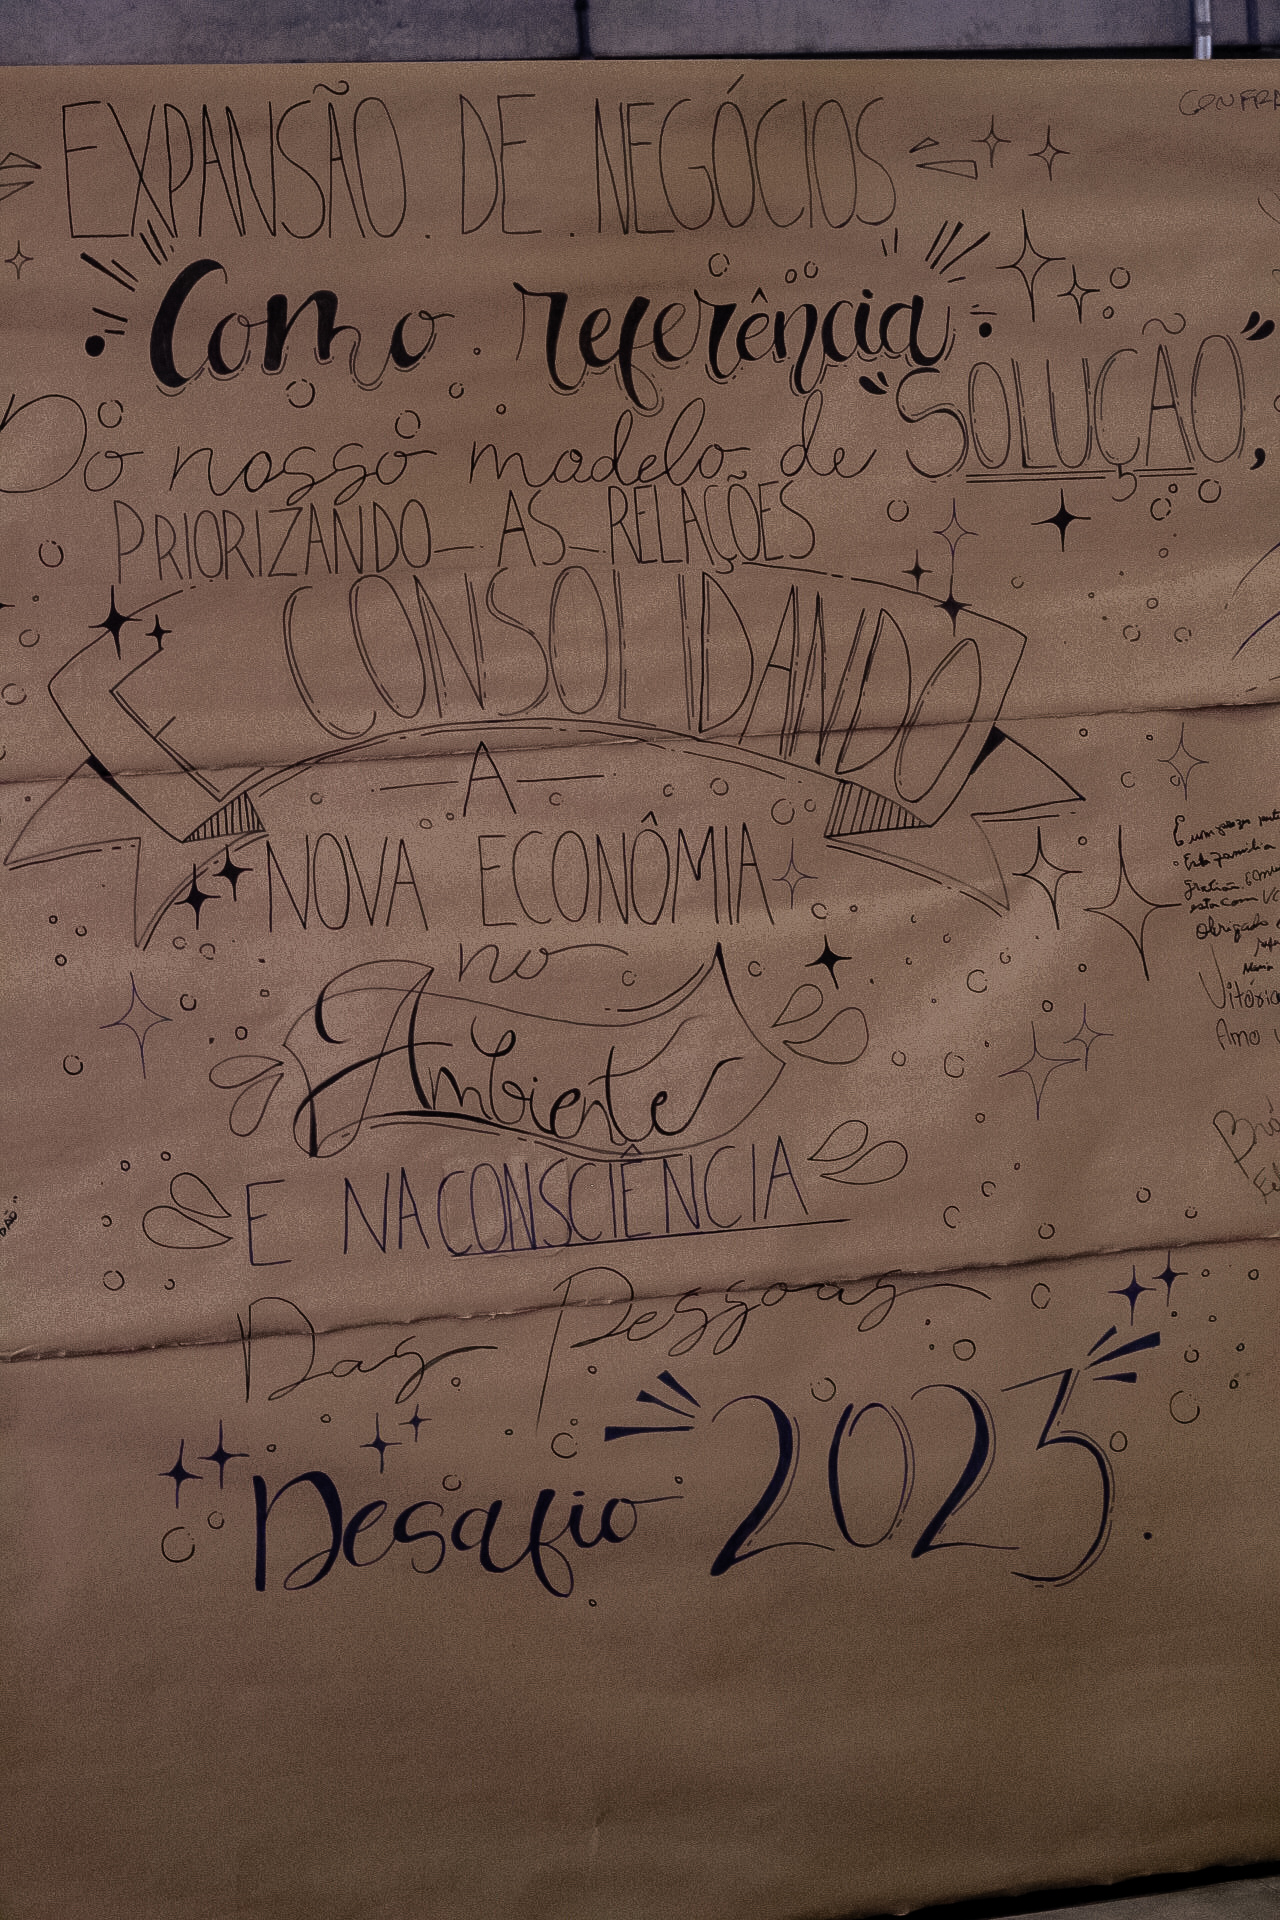 EXPANSÃO . DE . NEGÓCIOS
Como referência
Do nosso modelo de "SOLUÇÃO",
PRIORIZANDO AS RELAÇÕES
E CONSOLIDANDO
A
NOVA ECONÔMIA
no
Ambiente
E NA CONSCIÊNCIA
Das Pessoas
Desafio 2023.
CONFRA
Obrigado
Vitória
Amo